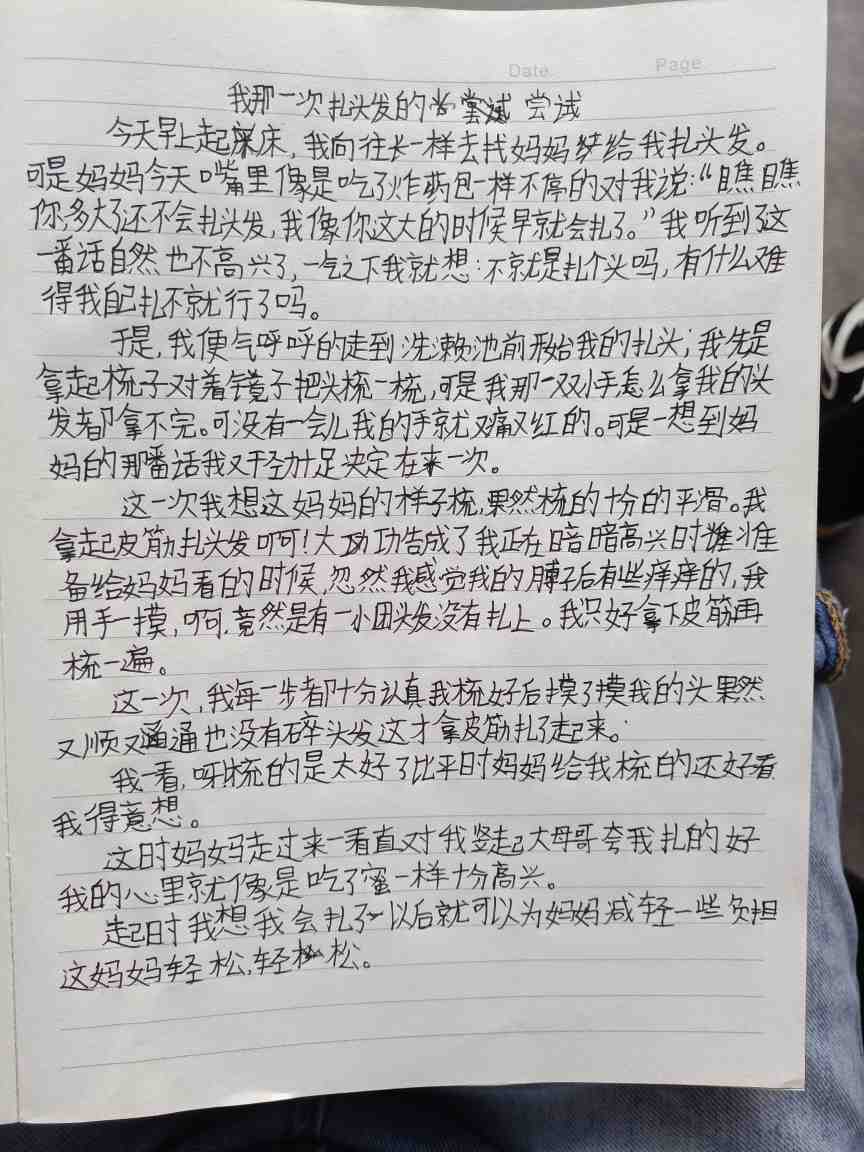 Date
Page
我那一次扎头发的尝试 尝试
今天早上起床，我向往长一样去找妈妈给我扎头发。
可是妈妈今天嘴里像是吃了炸药包一样不停的对我说：“瞧瞧
你，多大了还不会扎头发，我像你这大的时候早就会扎了。”我听到了这
一番话自然也不高兴了，一气之下我就想：不就是扎个头吗，有什么难
得我自己扎不就行了吗。
于是，我便气呼呼的走到洗漱池前开始我的扎头；我先是
拿起梳子对着镜子把头梳一梳，可是我那一双小手怎么拿我的头
发都拿不完。可没有一会儿我的手就又痛又红的。可是一想到妈
妈的那番话我又干劲十足决定在来一次。
这一次我想这妈妈的样子梳，果然梳的十分的平骨。我
拿起皮筋扎头发啊！大功告成了我正在暗暗高兴时准
备给妈妈看的时候，忽然我感觉我的脖子后有些痒痒的，我
用手一摸，啊，竟然是有一小团头发没有扎上。我只好拿下皮筋再
梳一遍。
这一次，我每一步都十分认真我梳好后摸了摸我的头果然
又顺又通也没有碎头发这才拿皮筋扎了起来。
我一看，呀梳的是太好了比平时妈妈给我梳的还好看
我得意想。
这时妈妈走过来一看直对我竖起大母哥夸我扎的好
我的心里就像是吃了蜜一样十分高兴。
起时我想我会扎了以后就可以为妈妈减轻一些负担
这妈妈轻松，轻松。